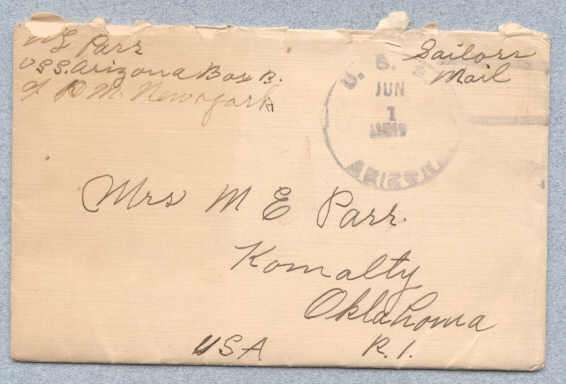 W L Parr
USS. Arizona Box B.
c/o P. M. New york
Sailors
Mail
U. S. S.
JUN
1
1919
ARIZONA
Mrs M E Parr.
Komalty
Oklahoma
USA R. 1.